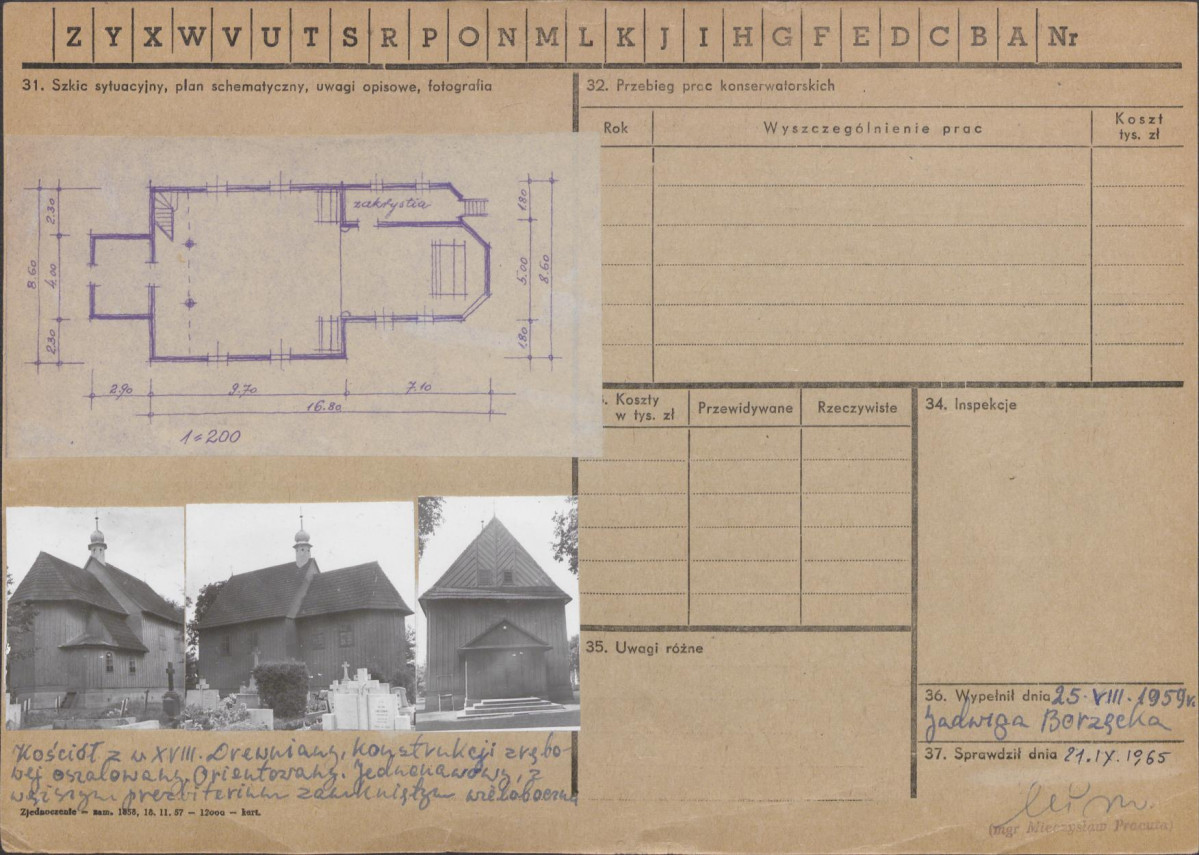 Z Y X W V U T S R P O N M L K J I H G F E D C B A Nr
31. Szkic sytuacyjny, plan schematyczny, uwagi opisowe, fotografia
zakrystia
2.30
4.00
2.30
8.60
1.80
5.00
1.80
8.60
2.90
9.70
7.10
16.80
1=200
Kościół z w XVIII. Drewniany, konstrukcji zrębo-
wej oszalowany. Orientowany. Jednonawowy, z
węższym prezbiterium zamkniętym wieloboczną
Zjednoczenie — zam. 1858, 15. 11. 57 — 12000 — kart.
32. Przebieg prac konserwatorskich
Rok
Wyszczególnienie prac
Koszt
tys. zł
Koszty
w tys. zł
Przewidywane
Rzeczywiste
34. Inspekcje
35. Uwagi różne
36. Wypełnił dnia 25. VIII. 1959 r.
Jadwiga Borzęcka
37. Sprawdził dnia 21. IX. 1965
(mgr Mieczysław Procuta)